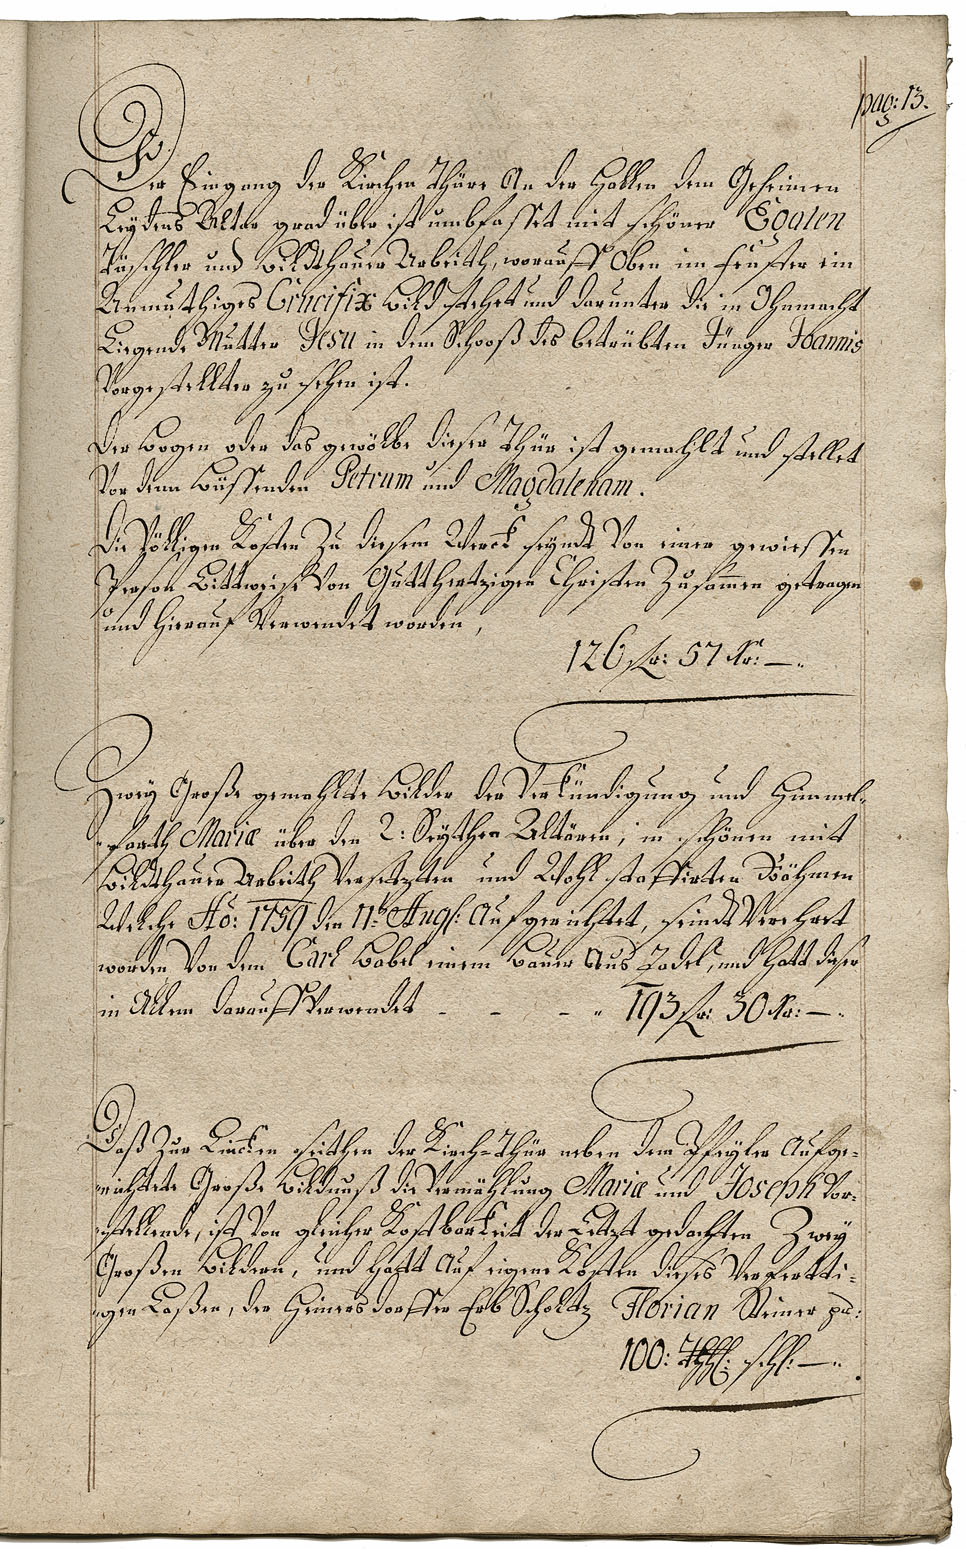 pag: 13.
Der Eingang der Kirchen Thüre An der Hallen dem Geheimen
Leydens Altar grad über ist umbfasset mit schöner Egalen
Tischler und Bildthauer Arbeith, worauff Oben im Fenster ein
Anmuthiges Crucifix Bild stehet und darunter die in Ohnmacht
Liegende Mutter Jesu in dem Schooß des betrübten Jünger Joannis
Vorgestellter zu sehen ist.
Der Bogen oder das gewölbe dieser Thür ist gemahlt und stellet
Vor denn Büssenden Petrum und Magdalenam.
Die Völligen Kosten Zu diesem Werck seyndt Von einer gewiessen
Person Bittweise Von Gutthertzigen Christen Zusamen getragen
und hierauf Verwendet worden,
126 flr: 57 Kr: —.
Zwey Große gemahlte Bilder der Verkündigung und Himmel-
-farth Mariæ über den 2: Seythen Altären, in schönen mit
Bildthauer Arbeith Versetzten und Wohl staffirten Röhmen
Welche Ao: 1759 den 11t Augl: Aufgerichtet, seindt Verehret
worden Von dem Carl Babel einem Bauer Aus Zadel, und hatt dieser
in Allem darauff Verwendet - - - - 193 flr: 30 Kr: —.
Daß Zur Lincken seithen der Kirch-Thür neben dem Pfeyler Aufge-
-richtete Große Bildnuß die Vermählung Mariæ und Joseph Vor-
-stellende, ist Von gleicher Kostbarkeit der Letzt gedachten Zwey
Großen Bildern, und hatt Auf eigene Kosten dieses Verfertti-
-gen Laßen, der Heinersdorffer Erb Scholtz Florian Steiner pr:
100: Thl: schl: —.